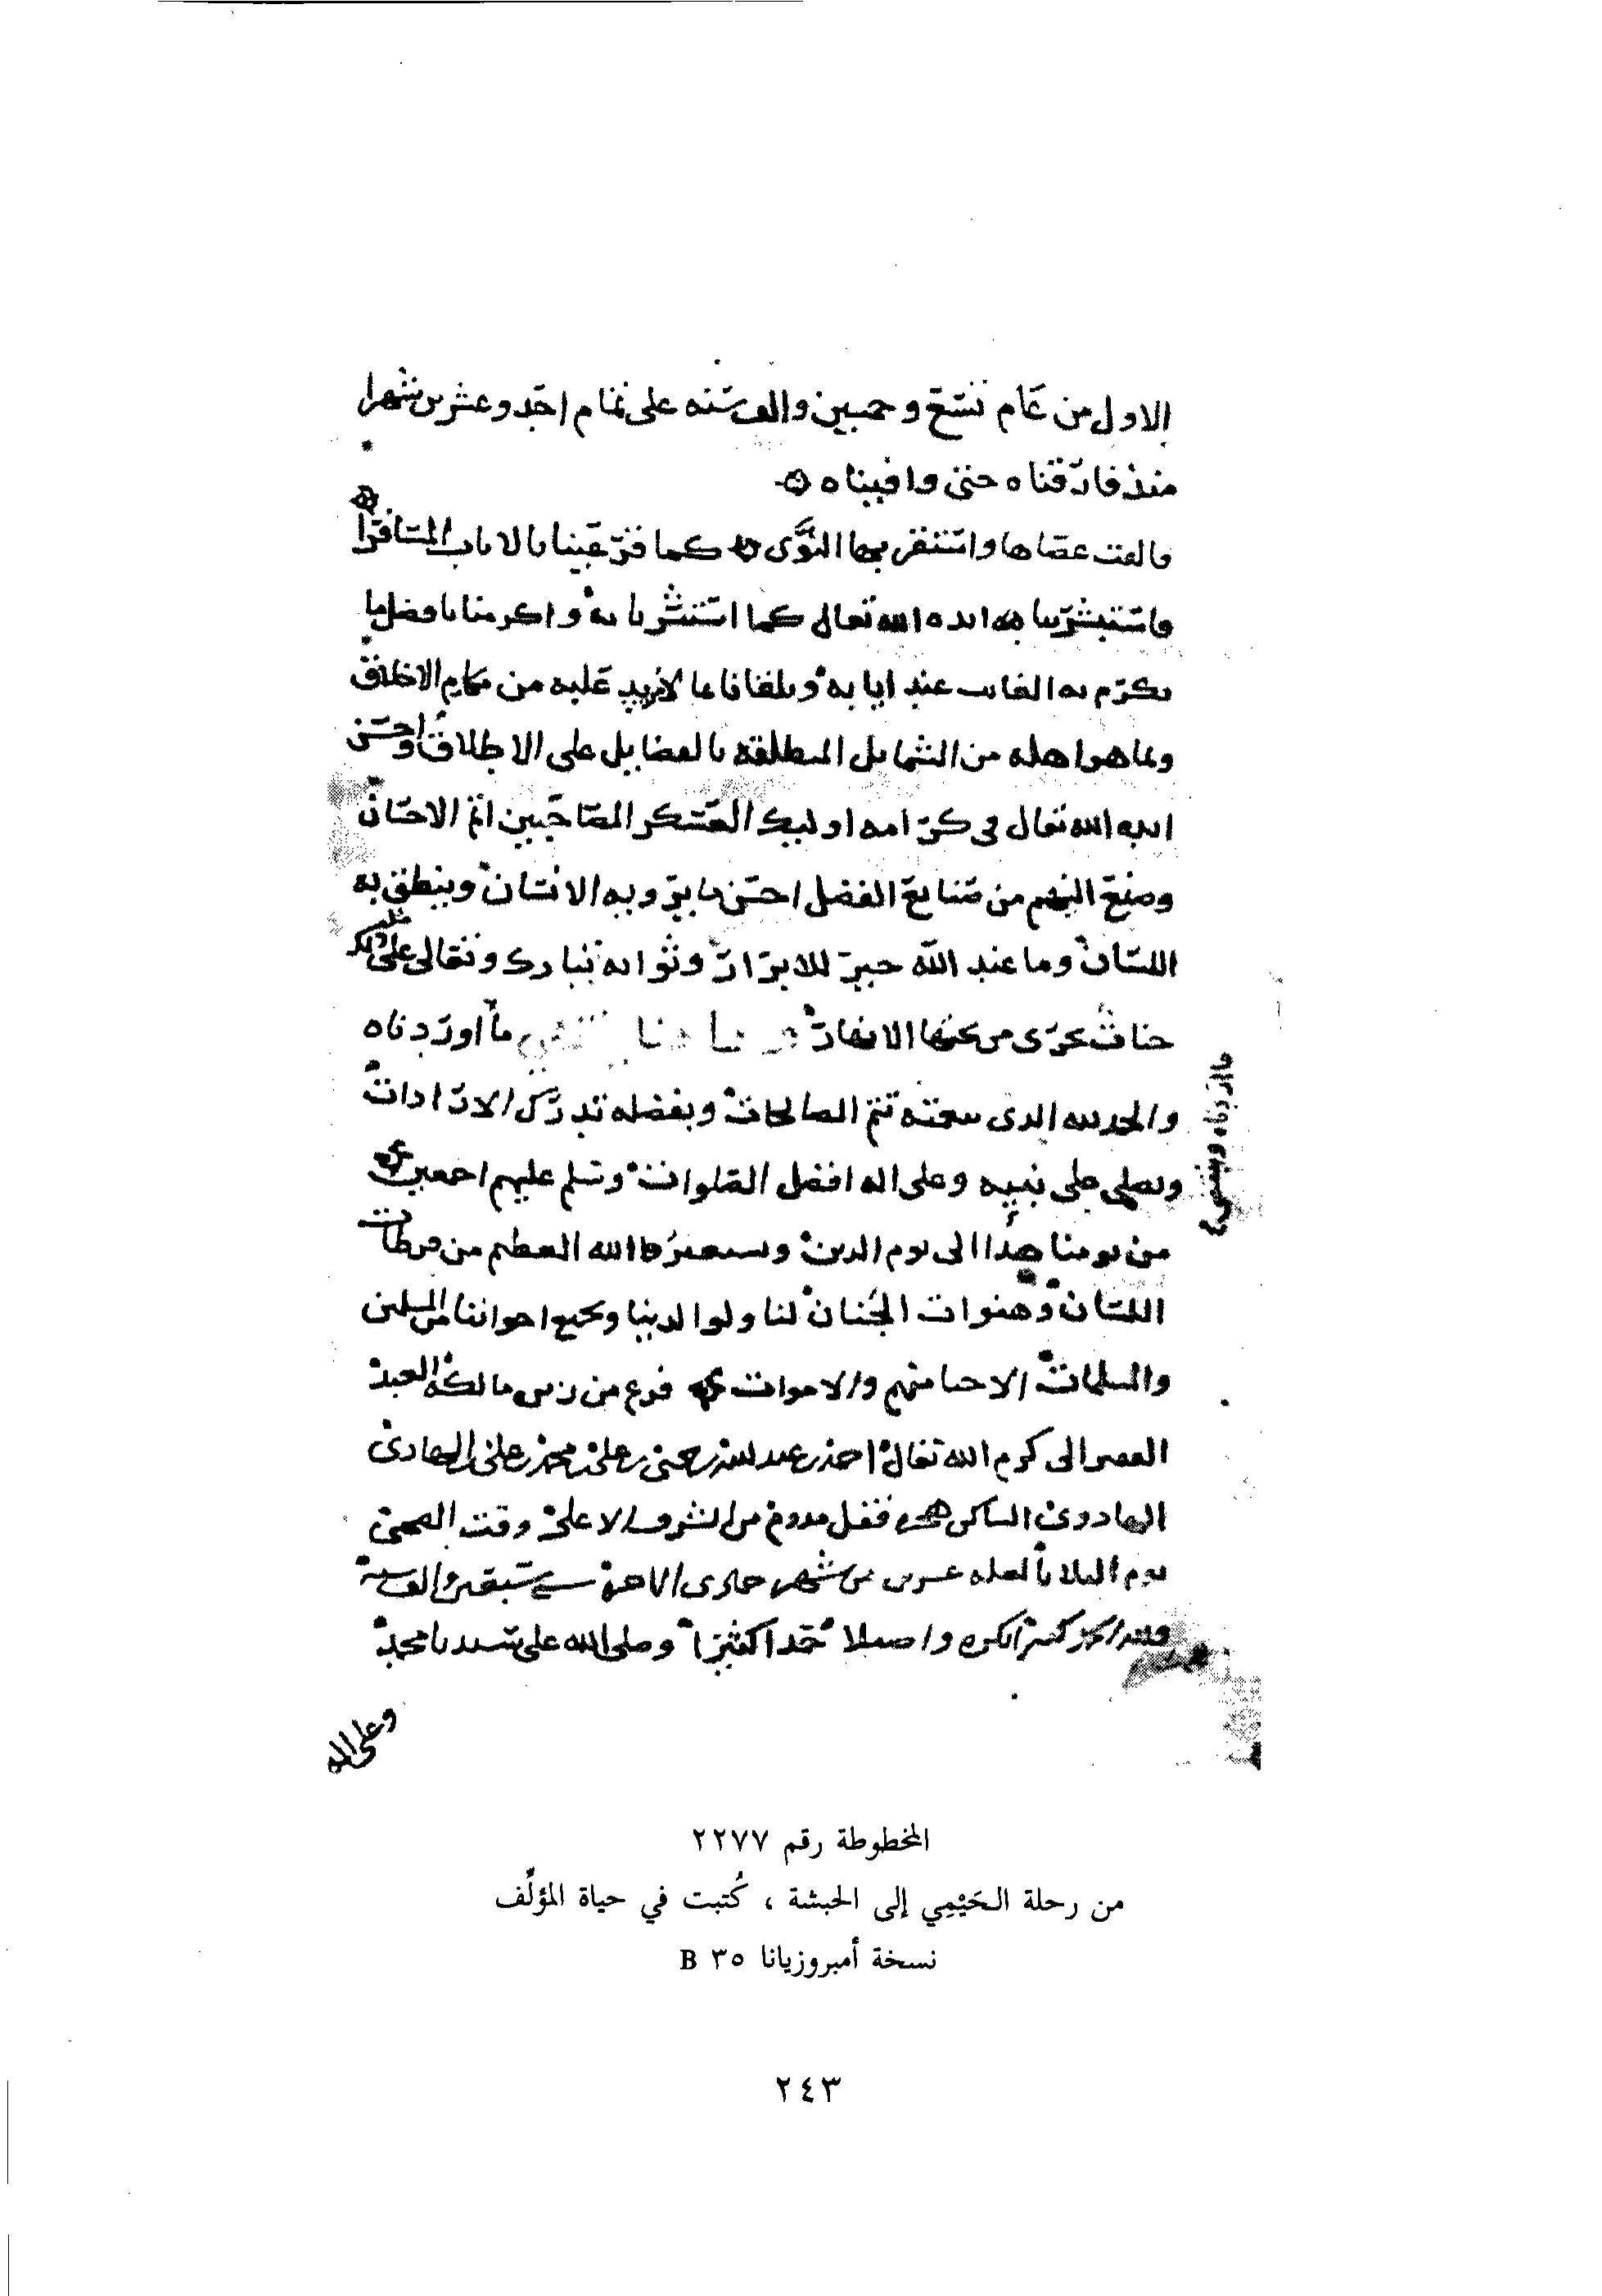 الاول من عام تسع وخمسين والف سنه على تمام احد وعشرين شهرا
منذ فارقناه حتى وافيناه
فالقت عصاها واستقر بها النوى كما قر عينا بالاياب المسافر
واستبشر بنا ايده الله تعالى كما استبشرنا به واكرمنا بافضل ما
يكرم به الغائب عند ايابه وتلقانا بما لا مزيد عليه من مكارم الاخلاق
وبما هو اهله من الشمايل المطلقه بالفضايل على الاطلاق واحسن
ايده الله تعالى في كرامه اوليك العسكر المصاحبين اتم الاحسان
وصنع اليهم من صنايع الفضل احسن ما يرويه الانسان وينطق به
اللسان وما عند الله خير للابرار وثوابه تبارك وتعالى على ذلك
جنات تجرى من تحتها الانهار ما اوردناه
والحمد لله الذي بنعمته تتم الصالحات وبفضله تدرك الارادات
ونصلي على نبيه وعلى اله افضل الصلوات ونسلم عليهم اجمعين
من يومنا هذا الى يوم الدين ونستغفر الله العظيم من فرطات
اللسان وهفوات الجنان لنا ولوالدينا وجميع اخواننا من المسلمين
والمسلمات الاحيا منهم والاموات فرغ من مالكه العبد
الى كرم الله تعالى احمد بن علي بن محمد بن علي الهادي
الهادوي الساكن من الشرف الاعلى وقت
يوم من شهر جمادى الاخرة سبعين والف سنه
حمدا كثيرا وصلى الله على سيدنا محمد
وعلى اله
ما اوردناه وينتهي
المخطوطة رقم ٢٢٧٧
من رحلة الحَيْمِي إلى الحبشة ، كُتبت في حياة المؤلِّف
نسخة أمبروزيانا B ٣٥
٢٤٣